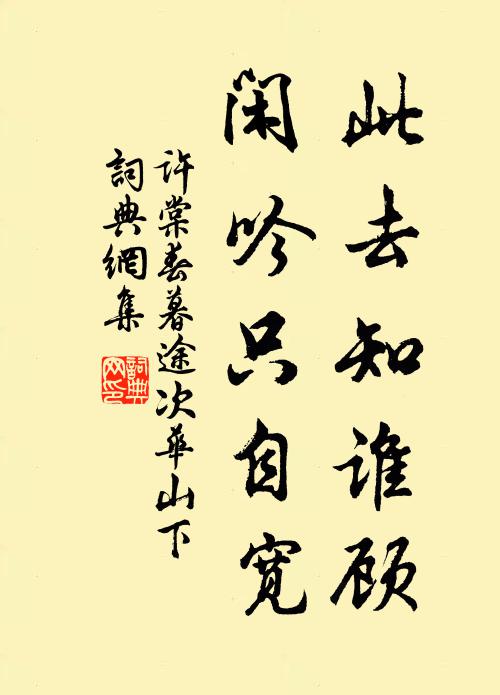 此去知谁顾
闲吟只自宽
許棠春暮途次華山下
詞典網集
詞典网印